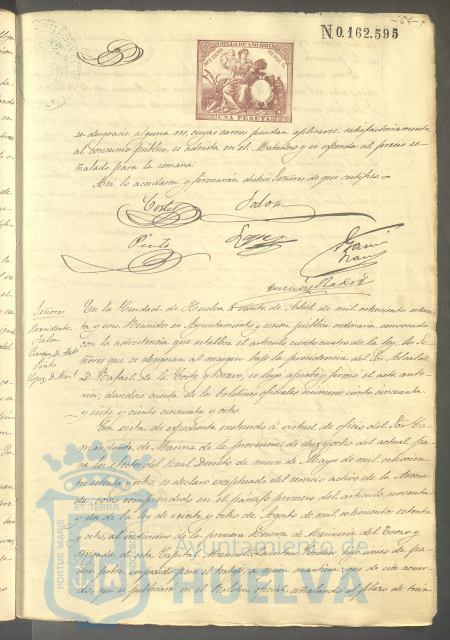 -64-
N 0.162.595
UNA PESETA
se desgracie alguna res, cuyas carnes puedan aplicarse satisfactoriamente
al consumo público, se admita en el Matadero y se espenda al precio se-
ñalado para la semana.
Asi lo acordaron y firmarán dichos Señores de que certifico =
Corte
Jalon
Pinto
Lopez
Garcia
Señores
Presidente
Jalon
Garcia D.
Pinto
Lopez D. Man.l
En la Ciudad de Huelva á veinte de Abril de mil ochocientos ochen-
ta y uno. Reunido en Ayuntamiento y sesion pública ordinaria, convocada
con la advertencia que establece el artículo ciento cuatro de la ley, los Se-
ñores que se designan al margen bajo la presidencia del Sr. Alcalde
D. Rafael de la Corte y Bravo, se leyó, aprobó y firmó el acta ante-
rior, dandose cuenta de los boletines oficiales números ciento cincuenta
y siete y ciento cincuenta y ocho.
En vista de espediente instruido á virtud de oficio del Sor. Co-
mandante de Marina de la provincia de diez y ocho del actual, pa-
ra los efectos del Real Decreto de nueve de Mayo de mil ochocien-
tos setenta y ocho, se declaró esceptuado del servicio activo de la Arma-
da, como comprendido en el párrafo primero del artículo noventa
y dos de la ley de veinte y ocho de Agosto de mil ochocientos setenta
y ocho, al individuo de la primera Reserva de Marinería del Trozo y
Brigada de esta Capital hijo único de pa-
dre pobre impedido para el trabajo, á quien mantiene; que de este acuer-
do, que se publicará en el Boletin oficial, señalando el plazo de trein-
PORTUS MARIS ET TERRAE
Ayuntamiento de
HUELVA